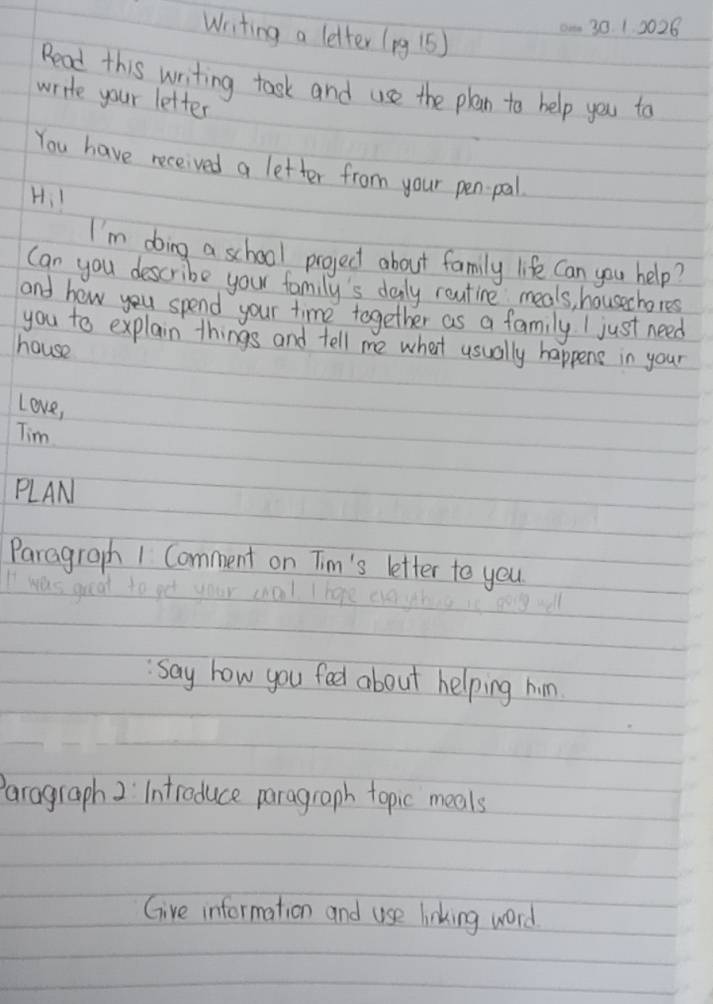 Writing a letter (pg 15) 30.1.2026
Read this writing task and use the plan to help you to
write your letter
You have received a letter from your pen-pal.
Hi!
I'm doing a school project about family life Can you help?
Can you describe your family's daily routine: meals, housechores
and how you spend your time together as a family. I just need
you to explain things and tell me what usually happens in your
house
Love,
Tim
PLAN
Paragraph 1: Comment on Tim's letter to you.
It was great to get your email. I hope everything is going well
: Say how you feel about helping him.
Paragraph 2: Introduce paragraph topic meals
Give information and use linking word.